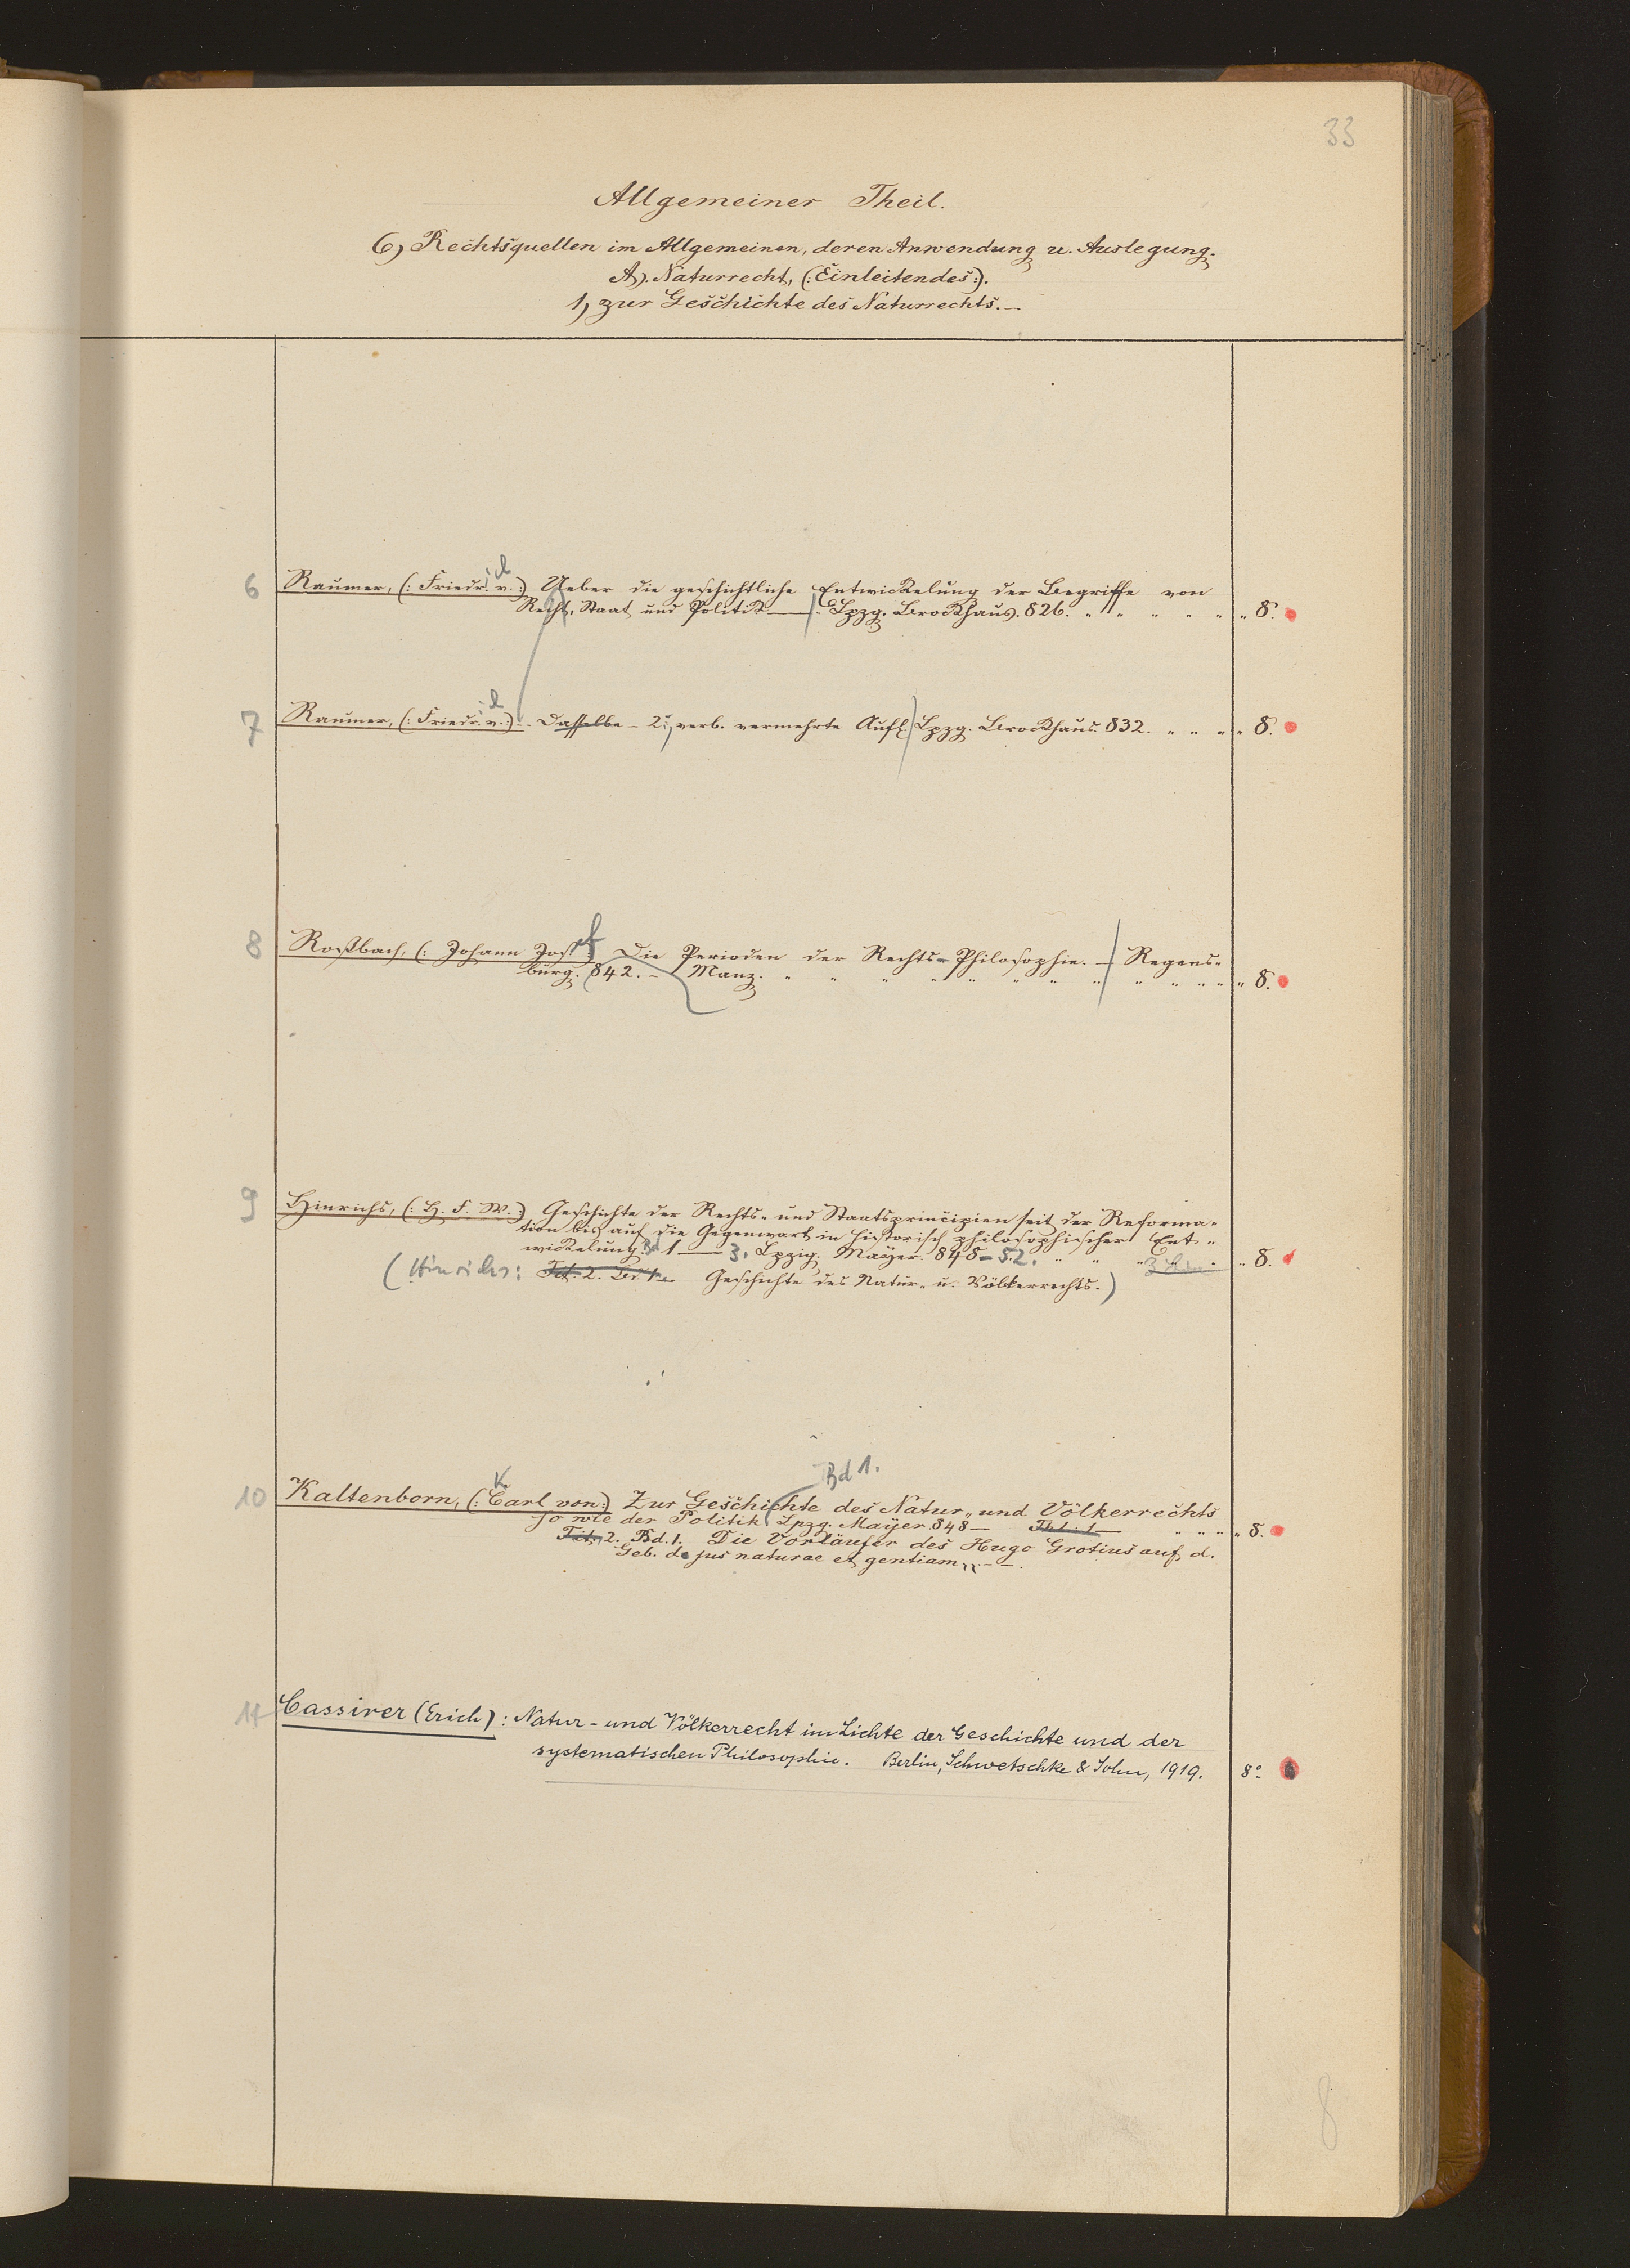 33
Allgemeiner Theil.
6, Rechtsquellen im Allgemeinen, deren Anwendung u. Auslegung.
A). Naturrecht, (: Einleitendes :).
1, zur Geschichte des Naturrechts. —
6 Raumer, (: Friedrich v. :) Ueber die geschichtliche Entwickelung der Begriffe von
Recht, Staat und Politik — . Lpzg. Brockhaus. 826. " " " " " " 8.
7 Raumer, (: Friedrich v. :) - Dasselbe - 2., verb. vermehrte Aufl. Lpzg. Brockhaus. 832. " " " " 8.
8 Roßbach, (: Johann Josef :) Die Perioden der Rechts-Philosophie. — Regens-
burg. 842. — Manz. " " " " " " " " " " " " " 8.
9 Hinrichs, (: H. F. W. :) Geschichte der Rechts- und Staatsprincipien seit der Reforma-
tion bis auf die Gegenwart in historisch philosophischer Ent-
wickelung. Bd 1 — 3. Lpzig. Mayer. 848-52. " " " " " 8.
(Hinrichs: Tit. 2. Bd. 1. Geschichte des Natur- u. Völkerrechts.)
Bd 1.
10 Kaltenborn, (: Carl von :) Zur Geschichte des Natur- und Völkerrechts
so wie der Politik Lpzg. Mayer 848 — Thl. 1 — " " " " 8.
Tit. 2. Bd. 1. Die Vorläufer des Hugo Grotius auf d.
Geb. de jus naturae et gentiam " — — .
11 Cassirer (Erich): Natur- und Völkerrecht im Lichte der Geschichte und der
systematischen Philosophie. Berlin, Schwetschke & Sohn, 1919. 8°
8